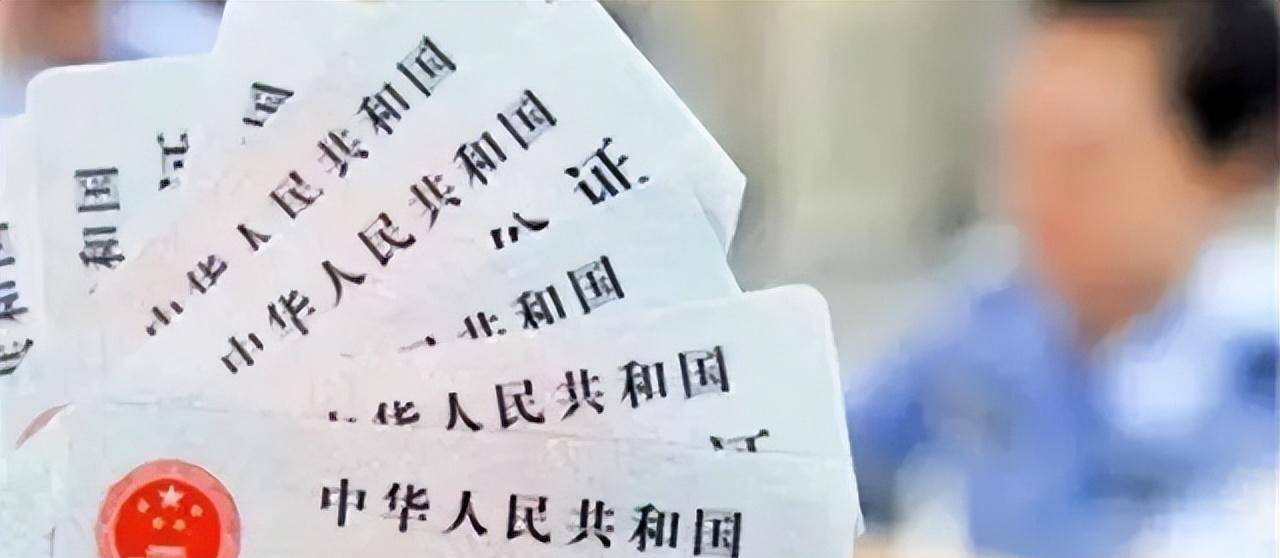 和国
国
中华人民共和国
中华人民共和国
证
共和国
华人民共和国
证
中华人民共和国